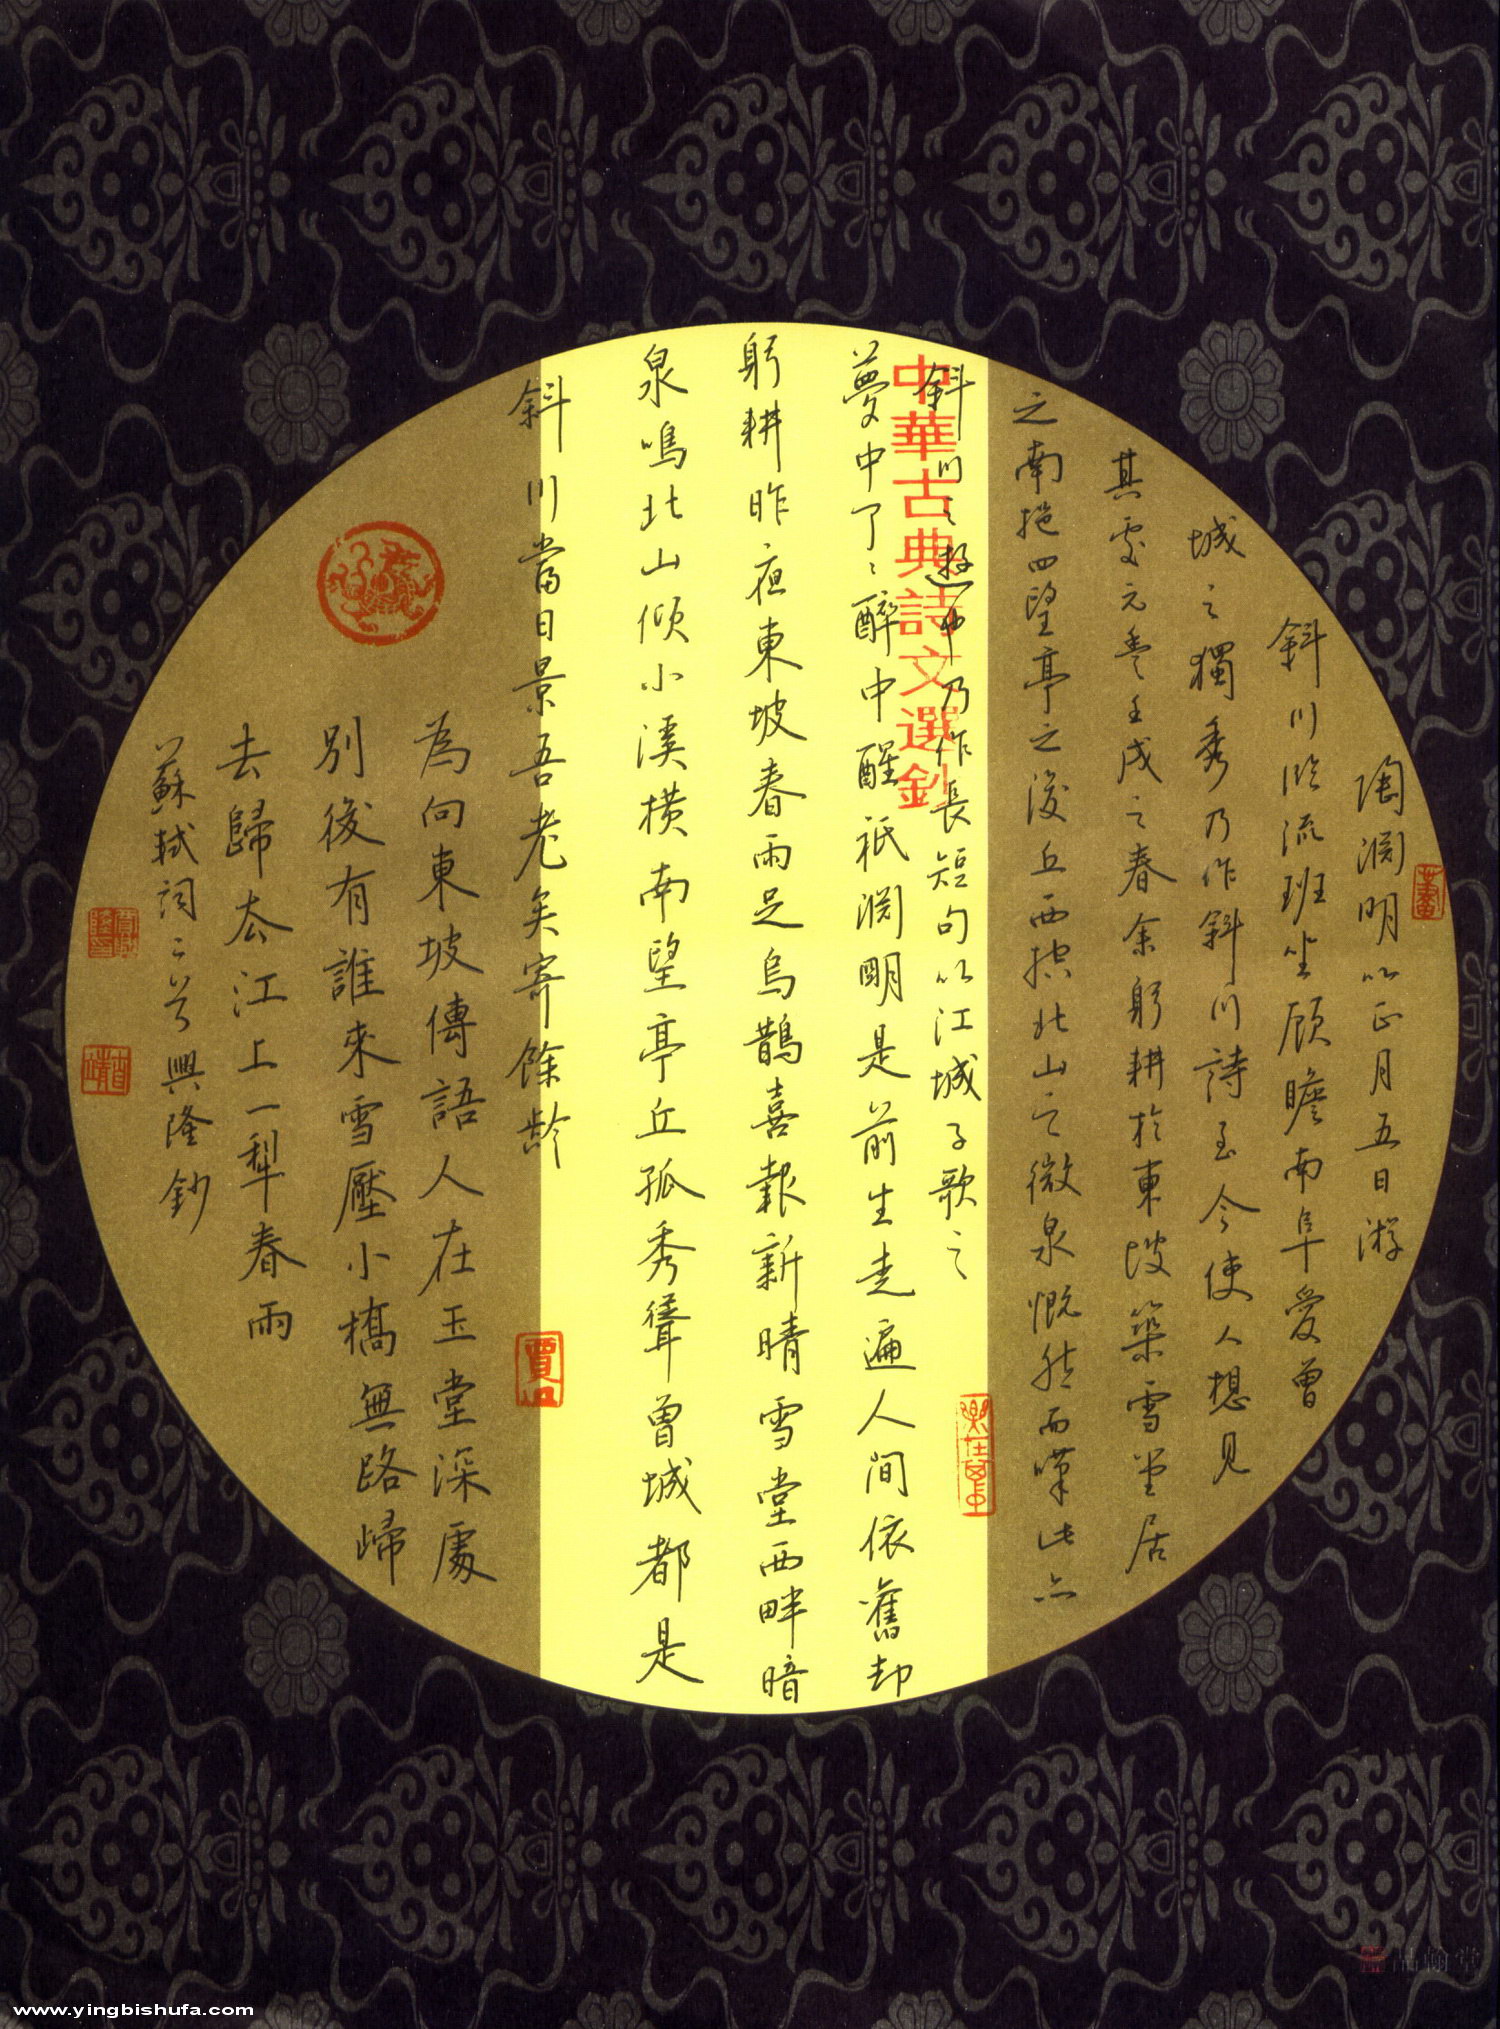 陶淵明以正月五日游
斜川临流班坐顾瞻南阜愛曾
城之獨秀乃作斜川詩至今使人想見
其處元豊壬戌之春余躬耕於東坡築雪堂居
之南挹四望亭之後丘西控北山之微泉慨然而嘆此亦
斜川之遊也乃作長短句以江城子歌之
中華古典詩文選鈔
夢中了了醉中醒祇淵明是前生走遍人間依舊却
躬耕昨夜東坡春雨足烏鵲喜報新晴雪堂西畔暗
泉鳴北山傾小溪横南望亭丘孤秀聳曾城都是
斜川當日景吾老矣寄餘齡
為向東坡傳語人在玉堂深處
別後有誰來雪壓小橋無路歸
去歸去江上一犁春雨
蘇軾詞二首興隆鈔
品翰堂
www.yingbishufa.com